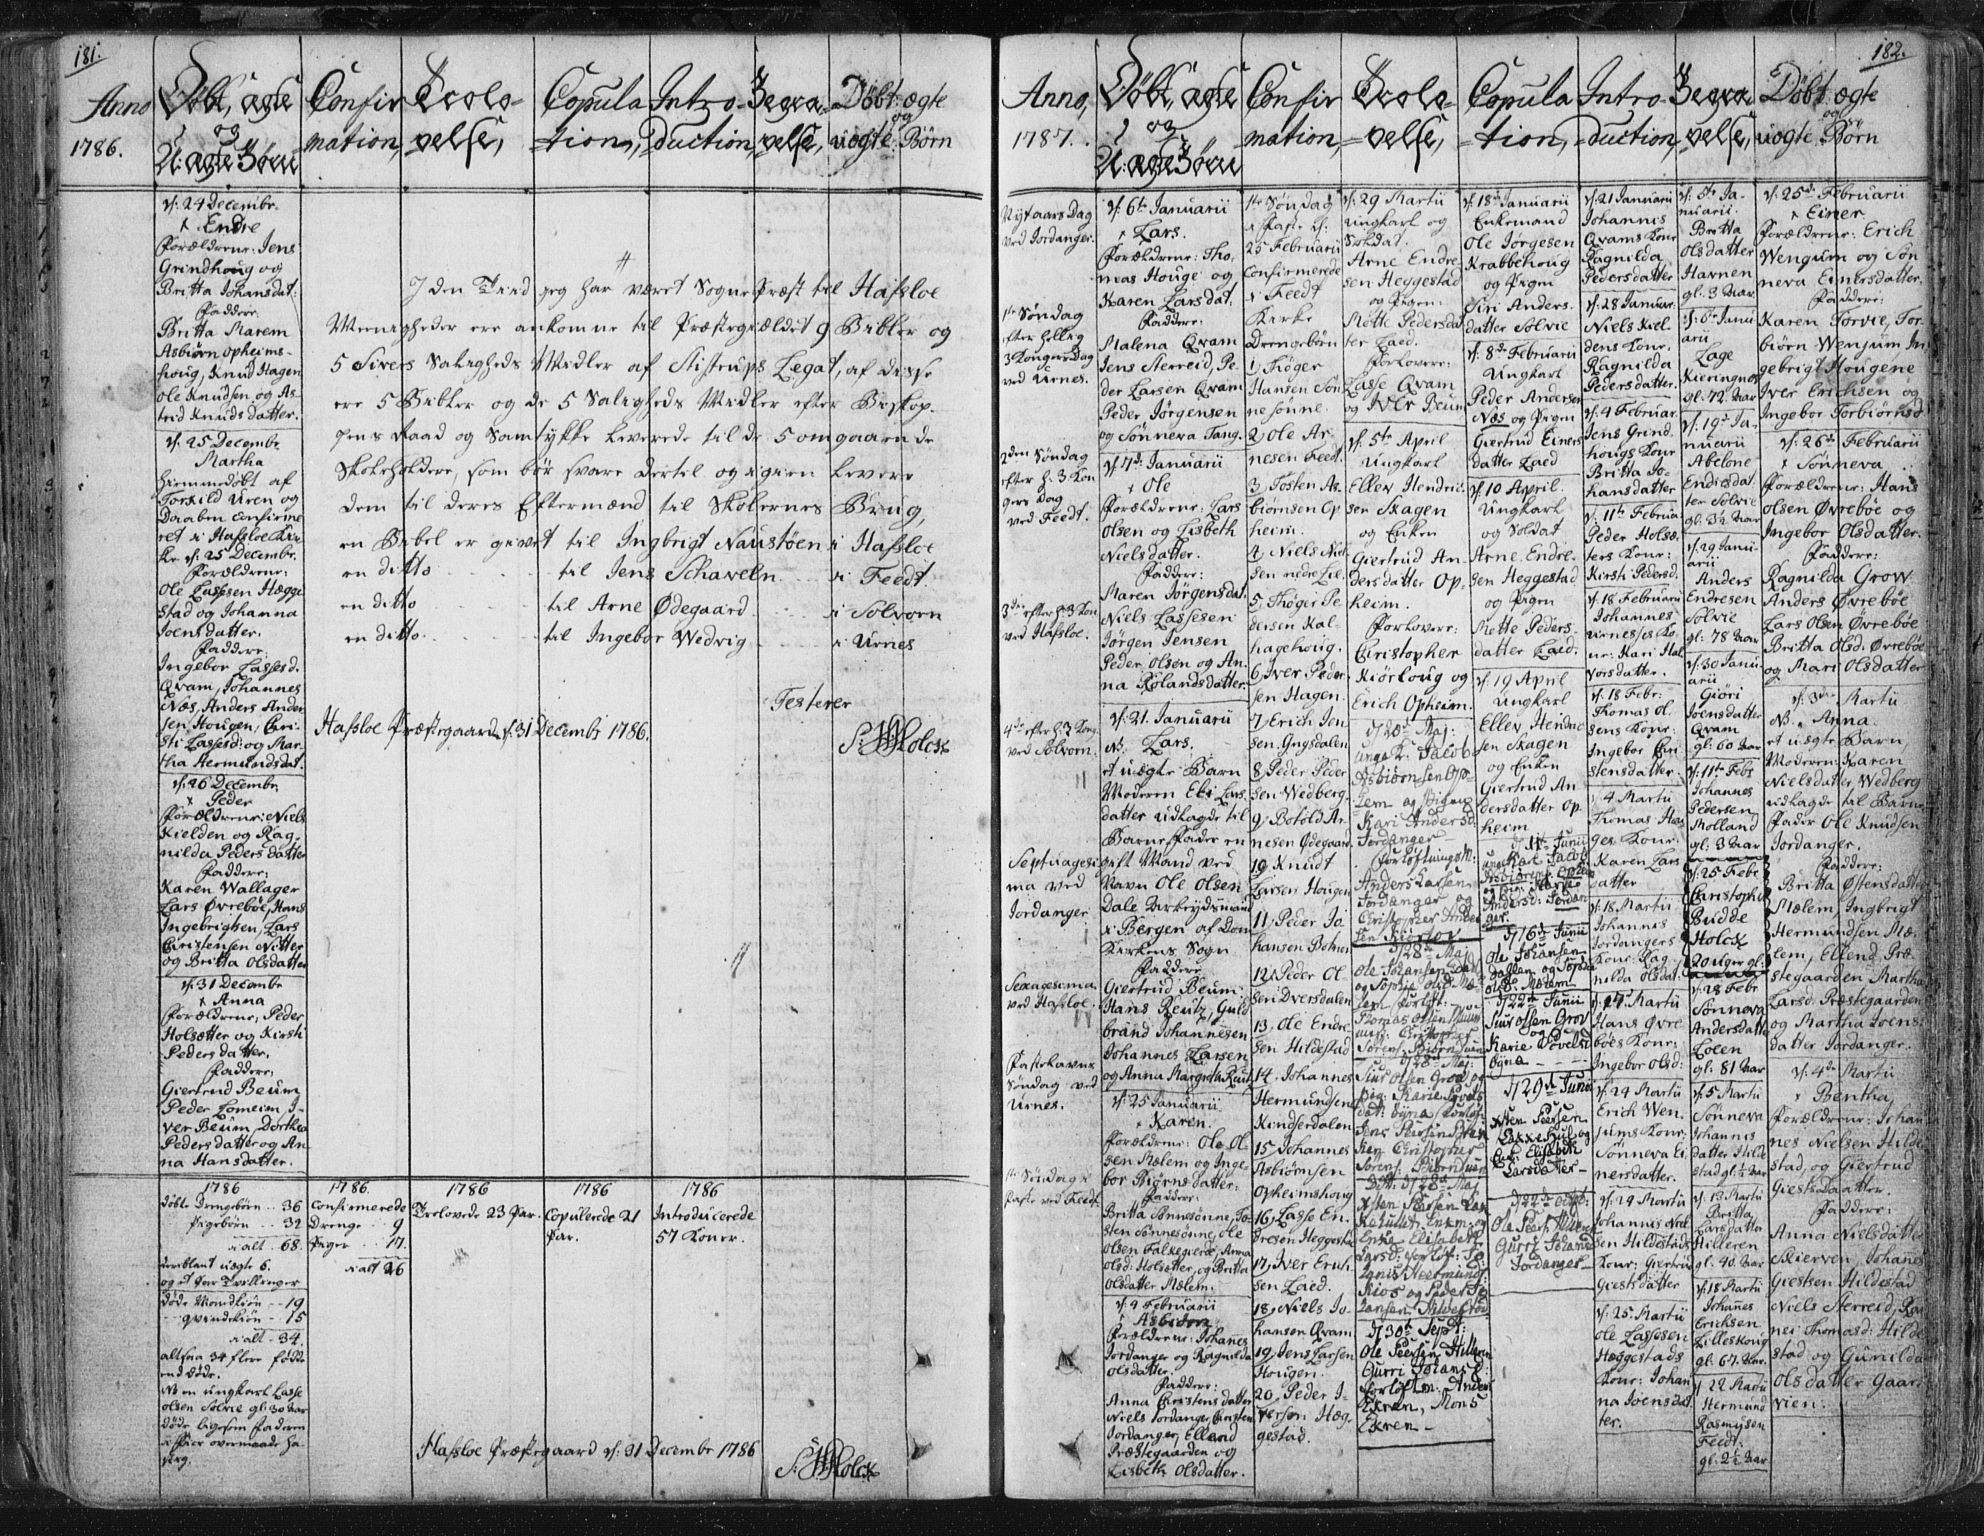 181.
Anno
1786.
Døbt, ægte
og
U:ægte Børn
Confir
mation,
Trolo-
velse,
Copula
-tion,
Intro-
duction,
Begra-
velse,
Døbt ægte
og
uægte Børn
d: 24 Decembr.
Endre
Forældrene: Jens
Grindhoug og
Britta Johansdat:
Faddere:
Britta Marem
Asbiørn Opheims-
houg, Knud Hagen
Ole Knudsen og As-
trid Knuds datter.
d: 25 Decembr.
Martha
hiemmedøbt af
Torkild Uren og
Daaben Confirme
ret i Hafsloe Kir-
ke d: 25 Decembr.
Forældrene:
Ole Lassesen Hægge
stad og Johanna
Joensdatter.
Faddere:
Ingebor Lassesd.
Qvam, Johannes
Næs, Anders Ander
sen Hougen, Chri-
sti Lassesd: og Mar-
tha Hermundsdat.
d: 26 Decembr.
Peder
Forældrene: Niels
Kielden og Rag-
nilda Peders datter
Faddere:
Karen Wallager
Lars Øvrebøe, Hans
Ingebrigtsen, Lars
Christensen Nitter
og Britta Olsdatter
d: 31 Decembr
Anna
Forældrene, Peder
Holsetter og Kirsti
Peders datter.
Faddere:
Giertrud Beum
Peder Lomeim, I-
ver Beum, Dorthea
Peders datter og An-
na Hansdatter.
I den Tiid jeg har været Sogne Præst til Hafsloe
Meenigheder ere ankomne til Præstegieldet 9 Bibler og
5 Sivers Saligheds Midler af Stistrups Legat, af disse
ere 5 Bibler og de 5 Saligheds Midler efter Biskop-
pens Raad og Samtykke leverede til de 5 omgaaende
Skoleholdere, som bør svare dertel og igien levere
dem til deres Eftermænd til Skolernes Brug,
en Bibel er givet til Ingbrigt Naustøen i Hafsloe
en ditto til Jens Schaveln i Feedt
en ditto til Arne Ødegaard i Solvorn
en ditto til Ingebor Wedvig i Urnes
Testerer
Hafsloe Præstegaard d: 31 Decembr 1786.
S: Holck
1786
Døbte Drengebørn .. 36
Pigebørn .. 32
i alt . 68.
iblant uægte 6.
og et par Tvillinger
Døde Mandkiøn .. 19
qvindekiøn .. 15
i alt . 34.
altsaa 34 flere fødde
end døde.
NB en ungkarl Lasse
Olsen Solvie gl: 30 Aar
1786
Confirmerede
Drenge . 9
Piger .. 17
i alt 26
1786
Trolovede 23 Par.
1786
Copulerede 21
Par.
1786
Introducerede
57 Koner.
Hafsloe Præstegaard d: 31 Decembr 1786
S: Holck
182.
Anno,
1787.
Døbt, ægte
og
U:ægte Børn
Confir
mation,
Trolo-
velse,
Copula
-tion,
Intro-
-duction,
Begra
-velse,
Døbt ægte
og
uægte Børn
Nytaars Dag
ved Jordanger.
1te Søndag
efter Hellig
3 Konger Dag
ved Urnes.
2den Søndag
efter H. 3 Kon
gers Dag
ved Feedt.
3die efter H 3 Kon
ved Hafsloe.
4de efter H 3 Kong
ved Solvorn.
Septuagesi
ma ved
Jordanger
Sexagesima
ved Hafsloe.
Fastelavns
Søndag ved
Urnes.
1te Søndag i
Faste ved Feedt.
d: 6te Januarii
Lars.
Forældrene: Tho-
mas Houge og
Karen Larsdat.
Faddere:
Malena Qvam
Jens Herreid, Pe-
der Larsen Qvam
Peder Jørgensen
og Sønneva Tang.
d: 7de Januarii
Ole
Forældrene: Lars
Olsen og Lisbeth
Nielsdatter.
Faddere:
Maren Jørgensdat.
Niels Lassesen
Jørgen Jensen
Peder Olsen og An-
na Rolandsdatter.
d: 21. Januarii
NB. Lars.
et uægte Barn
Moderen Eli Lars
datter udlagde til
Barne Fader en
gift Mand ved
Navn Ole Olsen
Dale Arbeydsmand
i Bergen af Dom
Kirkens Sogn
Faddere
Giertrud Beum
Hans Reutz, Guld
brand Johannesen
Johannes Larsen
og Anna Margretha Reutz
d: 25 Januarii
Karen.
Forældrene: Ole Ol
sen Mælem og Inge-
bor Biørnsdatter:
Faddere:
Britta Annesønne, To-
sten Sønnesønne, Ole
Olsen Falkegierde, Anna
Olsd: Holsetter, og Britta
Olsdatter Molem.
d: 4 Februarii
Asbiørn
Forældrene: Johanes
Jordanger og Ragnilda
Olsdatter.
Faddere:
Anna Christens datter
Niels Jordanger, Christen
Jordanger, Ellend
Præstegaarden og
Lisbeth Olsdatter.
1te Søndag
i Faste d:
25 Februarii
Confirmerede
i Feedt
Kirke
Drengebørn
1, Thøger
Hansen Søn
nesønne.
2, Ole Ar-
nesen Feedt.
3, Tosten As-
biørnsen Op
heim.
4, Niels Niel
sen nedre Lie.
5, Thøger Pe
dersen Kal-
hagehoug.
6, Iver Peder
sen Hagen.
7, Erich Jen
sen Yngsdalen
8, Peder Peder
sen Wedberg.
9, Botold Ar
nesen Ødegaard.
10, Knudt
Larsen Hougen
11, Peder Jo
hansen Bohun
12, Peder Ol
sen Dversdalen
13, Ole Endre
sen Hildestad
14, Johannes
Hermundsen
Kindserdalen
15, Johannes
Asbiørnsen
Opheimshoug
16, Lasse En-
dresen Heggestad
17, Iver Erich
sen Laed.
18, Niels Jo
hansen Qvam
19, Jens Larsen
Hougen.
20, Peder I-
versen Hæg-
gestad.
d: 29 Martii
Ungkarl og
Soldat.
Arne Endre-
sen Heggestad
og Pigen:
Mette Pedersdat
ter Laed.
Forlovere:
Lasse Qvam
og Iver Beum
d: 5te April
Ungkarl
Ellev Hendric
sen Skagen
og Enken
Giertrud An
dersdatter Op-
heim.
Forlovere:
Christopher
Kiørloug og
Erich Opheim.
d/20de Maj:
unge K. Jacob
Asbiørnsen Op-
Jem og Pigen
Kari Andersd.
Jordanger
Forløftningsm:
Anders Larsen
Jordanger og
Christopher Ander
sen Kiørlov
d/28de Maj
Ole Johansen Dah
og Sophie Olsd. Mæ-
lem Forløft:
Thomas Olsen
Christopher
Sørens: Biørn
d/28de Maj:
Siur Olsen Groov og
Pig: Karie Povels
dat: Øyna Forløf:
Jens Persen
Christopher
Sørens: Biørnsuen
Dito. d/28de Maj
Xsten Peersen Lax
Enke Elisabeth
Larsd: Forløft: Jo-
hans Hermund:
Kios og Peder
Jansen
d/30te Sept:
Ole Peersen Hilleren
Gurri Johansd:
Forløftm: Anders
Ekren, Mons
Ekren
d: 18de Januarii
Enkemand
Ole Jørgesen
Krabbehoug
og Pigen
Siri Anders-
datter Solvie
d: 8de Februarii
Ungkarl
Peder Andersen
Næs og Pigen
Giertrud Einers
datter Laed
d: 10 April
Ungkarl
og Soldat
Arne Endre-
sen Heggestad
og Pigen
Mette Peders
datter Laed.
d: 19 April
Ungkarl
Ellev Hendric
sen Skagen
og Enken
Giertrud An-
dersdatter Op
heim
d/14de Junii
unge Karl Jacob
Asbiørens: Ophem
og Pige: Karie
Andersd: Jordan
ger.
d/16de Junii
Ole Johansen
Dahlen og Sophie
Olsd: Mælem
d/22de Junii
Siur Olsen Grov
og
Karie Povelsd
Øyna
d/29de Junii
Xsten Peersen
og
Enk: Elisabeth
Larsdatter
d/22de Octob:
Ole Peers: Hilleren
Gurri Johansd
Jordanger
d: 21 Januarii
Johannis
Qvams Kone
Ragnilda
Pedersdatter
d: 28 Januar.
Niels Kiel-
dens Kone.
Ragnilda
Pedersdatter.
d: 4 Februar.
Jens Grind-
hougs Kone
Britta Jo-
hansdatter
d: 11te Februa
Peder Holsæ-
ters Kone:
Kirsti Pedersd.
d: 18 Februarii
Johannes
Urnesses Ko-
ne: Kari Hal
vorsdatter.
d: 18 Febr:
Thomas Ol-
sens Kone:
Ingebor Chri
stensdatter.
d: 4 Martii
Thomas Hou
ges Kone:
Karen Lars
datter
d: 18 Martii
Johannis
Jordangers
Kone: Rag-
nilda Olsdat:
d: 17 Martii
Hans Øvre-
bøes Kone:
Ingebor Olsd:
d: 24 Martii
Erich Wen-
jums Kone:
Sønneva Ei-
nersdatter.
d: 24 Martii
Johannis Niel
sen Hildestads
Kone: Giertrud
Giestsdatter
d: 25 Martii
Ole Lassesen
Hæggestads
Kone: Johan
na Joensdat-
ter.
d: 5te Ja-
nuarii.
Britta
Olsdatter
Havnen
gl: 3 Aar
d: 6te Janu
arii
Lage
Kieringnes
gl: 72 Aar
d: 19de Ja-
nuarii
Abelone
Endresdat
ter Solvie
gl: 3½ Aar
d: 29 Janu-
arii
Anders
Endresen
Solvie
gl: 78 Aar
d: 30 Janu-
arii
Giøri
Joensdatter
Qvam
gl: 60 Aar
d: 11te Febr
Johannes
Pedersen
Molland
gl: 3 Aar
d: 25 Febr
Christopher
Budde
Holck
20 uger gl:
d: 28 Febr
Sønneva
Andersdatter
Loen
gl: 81 Aar
d: 5 Martii
Sønneva
Johannis
datter Hilde
stad gl: ½ Aar
d: 13 Martii
Britta
Larsdatter
Hilleren
gl: 40 Aar
d: 18 Martii
Johanes
Erichsen
Lilleskoug
gl: 67 Aar.
d: 22 Martii
Hermund
Rasmusen
Feedt.
gl: 2½ Aar
d: 25de Februarii
Einer
Forældrene: Erich
Wengum og Søn
neva Einersdatter
Faddere:
Karen Torvie, Tor-
biørn Wensum, In-
gebrigt Hougene
Iver Erichsen og
Ingebor Torbiørnsd
d: 26de Februarii
Sønneva
Forældrene: Hans
Olsen Øvrebøe og
Ingebor Olsdatter.
Faddere:
Ragnilda Grow
Anders Øvrebøe
Lars Olsen Øvrebøe
Britta Olsd. Øvrebøe
og Mari Olsdatter
d: 3die Martii
NB. Anna
et uægte Barn
Moderen: Karen
Nielsdatter Wedberg
udlagde til Barne
Fader Ole Knudsen
Jordanger.
Faddere:
Britta Østensdatter
Mælem, Ingbrigt
Hermundsen Mæ-
lem, Ellend Præ-
stegaarden Martha
Larsd: Præstegaarden
og Martha Joens
datter Jordanger.
d: 4de Martii
Bentha
Forældrene: Johan
nes Nielsen Hilde
stad, og Giertrud
Giestsdatter.
Faddere:
Anna Nielsdatter
Skierven, Johanes
Giestsen Hildestad
Niels Herreid, Rag
nei Thomasd: Hilde
stad og Gunilda
Olsdatter Gaar
vien.